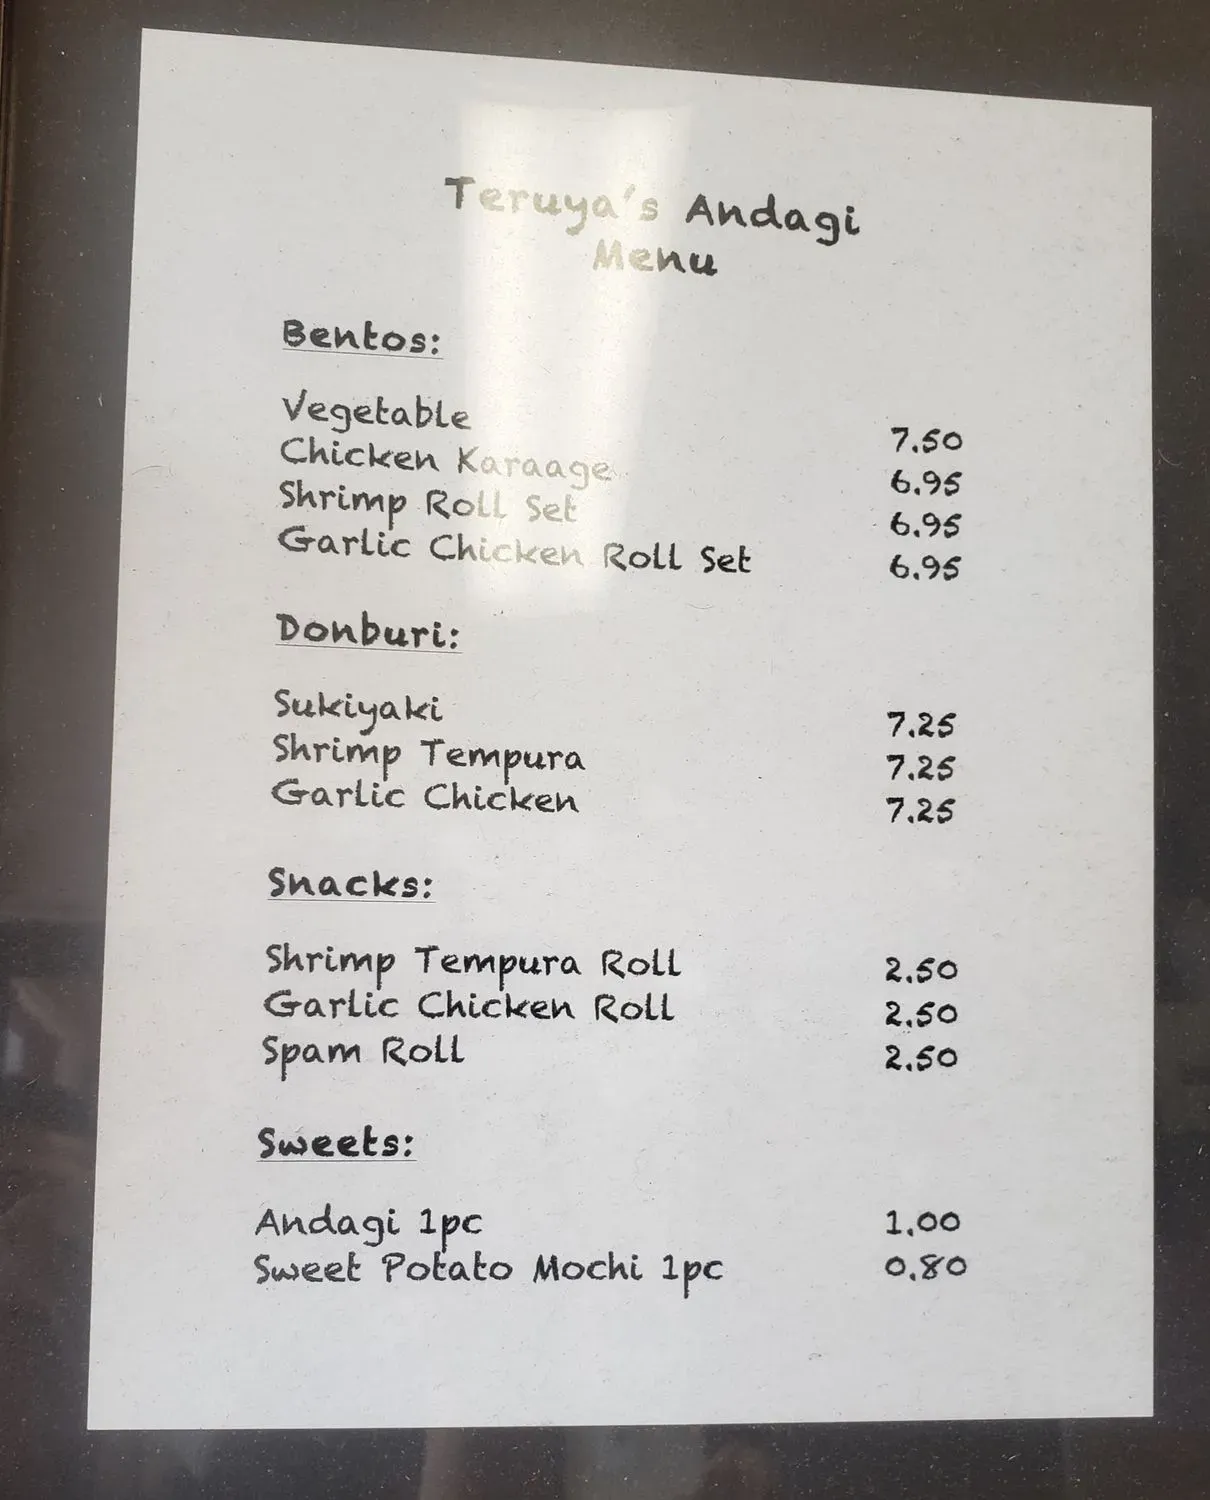 Teruya's Andagi
Menu
Bentos:
Vegetable 7.50
Chicken Karaage 6.95
Shrimp Roll Set 6.95
Garlic Chicken Roll Set 6.95
Donburi:
Sukiyaki 7.25
Shrimp Tempura 7.25
Garlic Chicken 7.25
Snacks:
Shrimp Tempura Roll 2.50
Garlic Chicken Roll 2.50
Spam Roll 2.50
Sweets:
Andagi 1pc 1.00
Sweet Potato Mochi 1pc 0.80